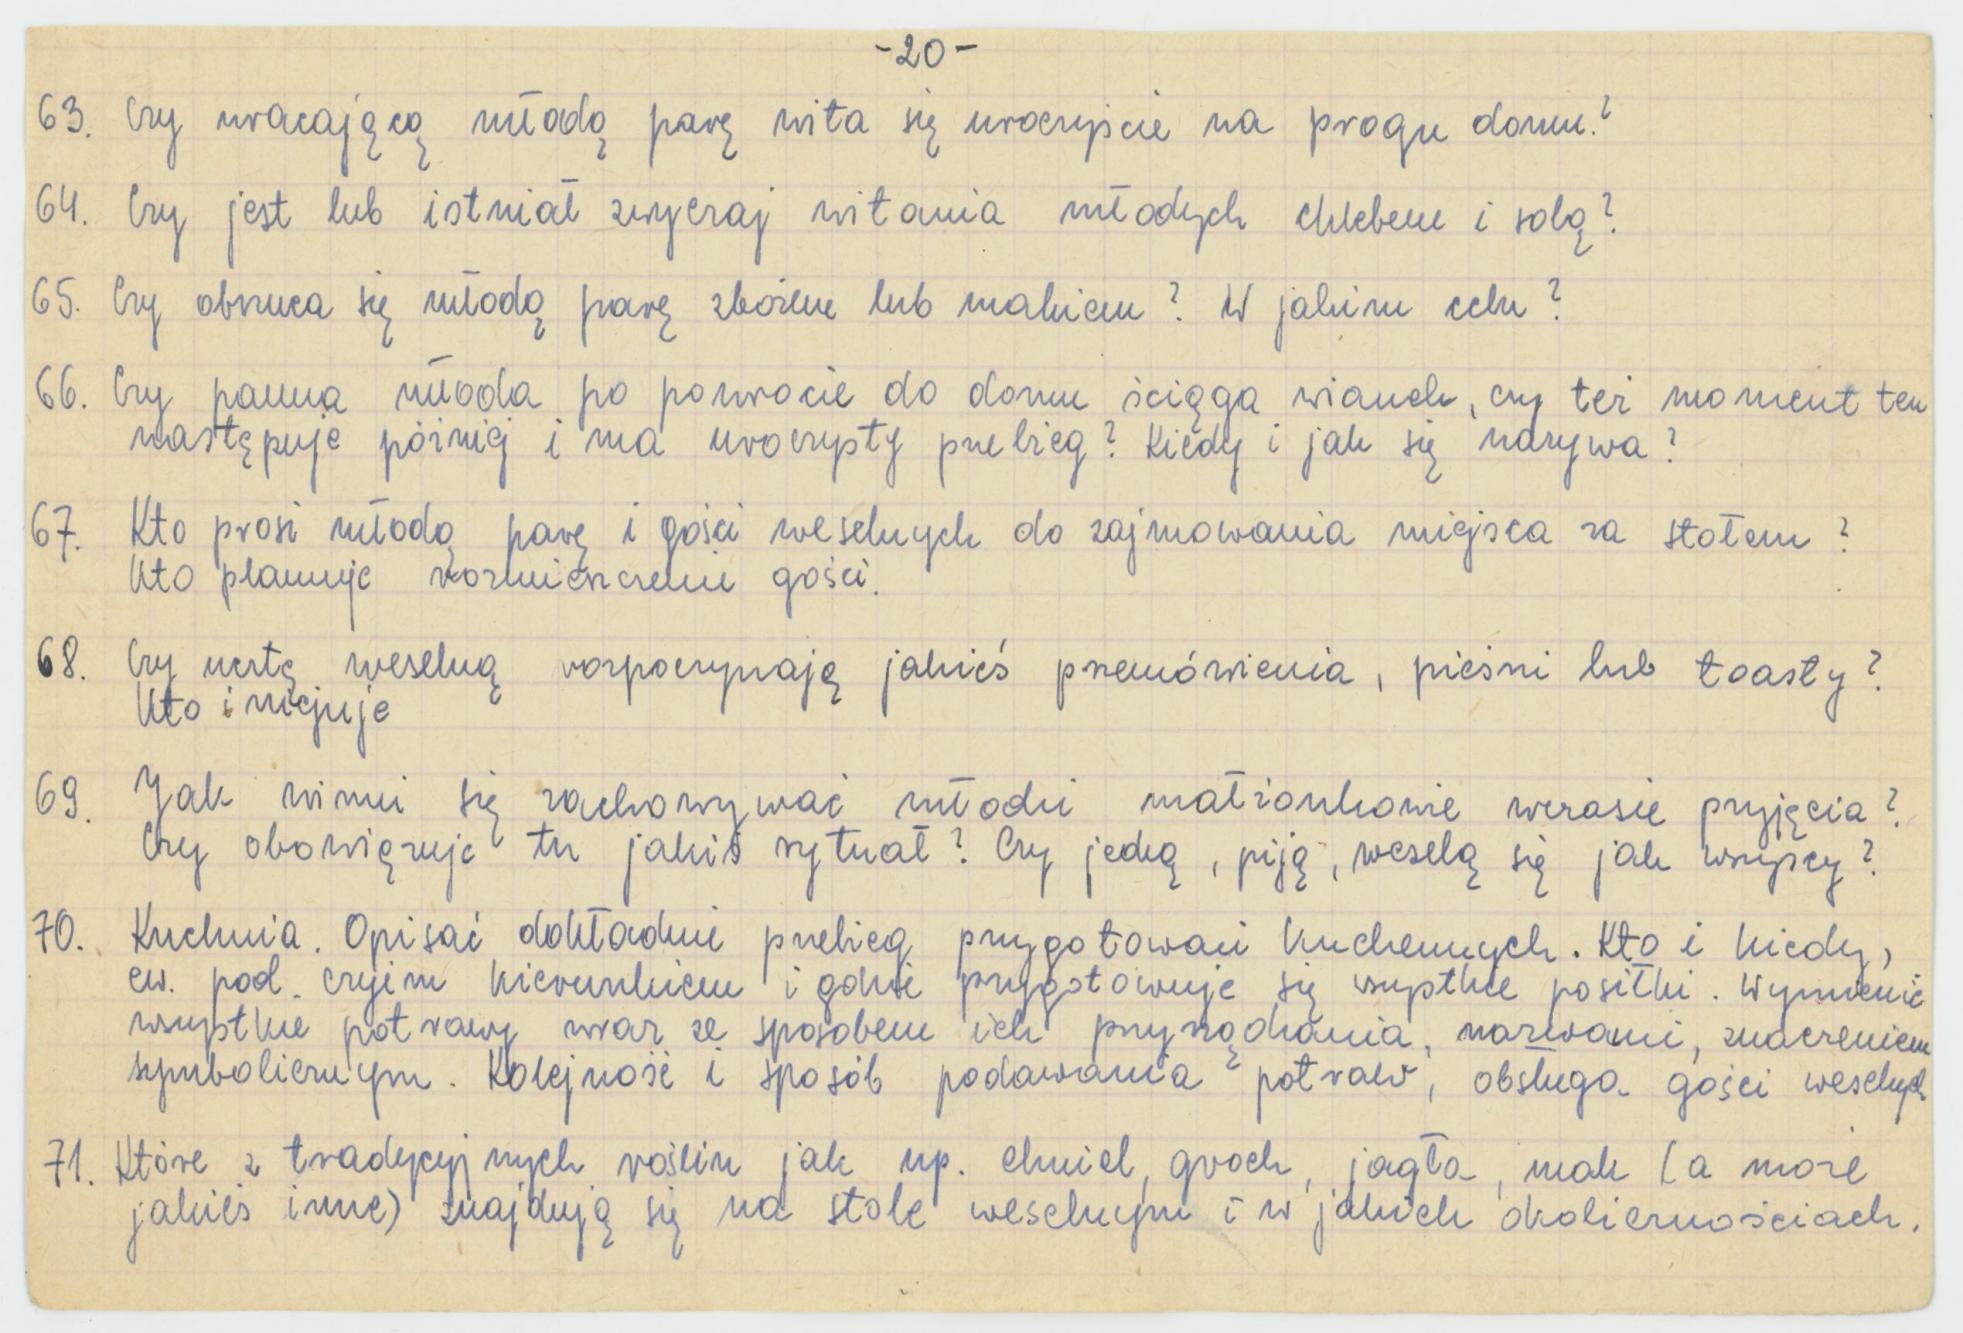 -20-
63. Czy wracającą młodą parę wita się uroczyście na progu domu?
64. Czy jest lub istniał zwyczaj witania młodych chlebem i solą?
65. Czy obrzuca się młodą parę zbożem lub makiem? W jakim celu?
66. Czy panna młoda po powrocie do domu ściąga wianek, czy też moment ten
następuje później i ma uroczysty przebieg? Kiedy i jak się nazywa?
67. Kto prosi młodą parę i gości weselnych do zajmowania miejsca za stołem?
Kto planuje rozmieszczenie gości.
68. Czy ucztę weselną rozpoczynają jakieś przemówienia, pieśni lub toasty?
Kto inicjuje
69. Jak winni się zachowywać młodzi małżonkowie wczasie przyjęcia?
Czy obowiązuje tu jakiś rytuał? Czy jedzą, piją, weselą się jak wszyscy?
70. Kuchnia. Opisać dokładnie przebieg przygotowań kuchennych. Kto i kiedy,
ew. pod czyim kierunkiem i gdzie przygotowuje się wszystkie posiłki. Wymienić
wszystkie potrawy wraz ze sposobem ich przyrządzania, nazwami, znaczeniem
symbolicznym. Kolejność i sposób podawania potraw, obsługa gości weselnych
71. Które z tradycyjnych roślin jak np. chmiel, groch, jagła, mak (a może
jakieś inne) znajdują się na stole weselnym i w jakich okolicznościach.